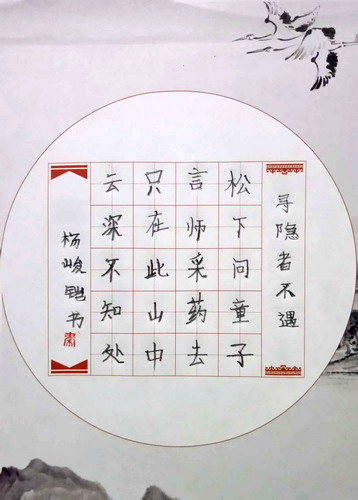 寻隐者不遇
松下问童子
言师采药去
只在此山中
云深不知处
杨峻铠书